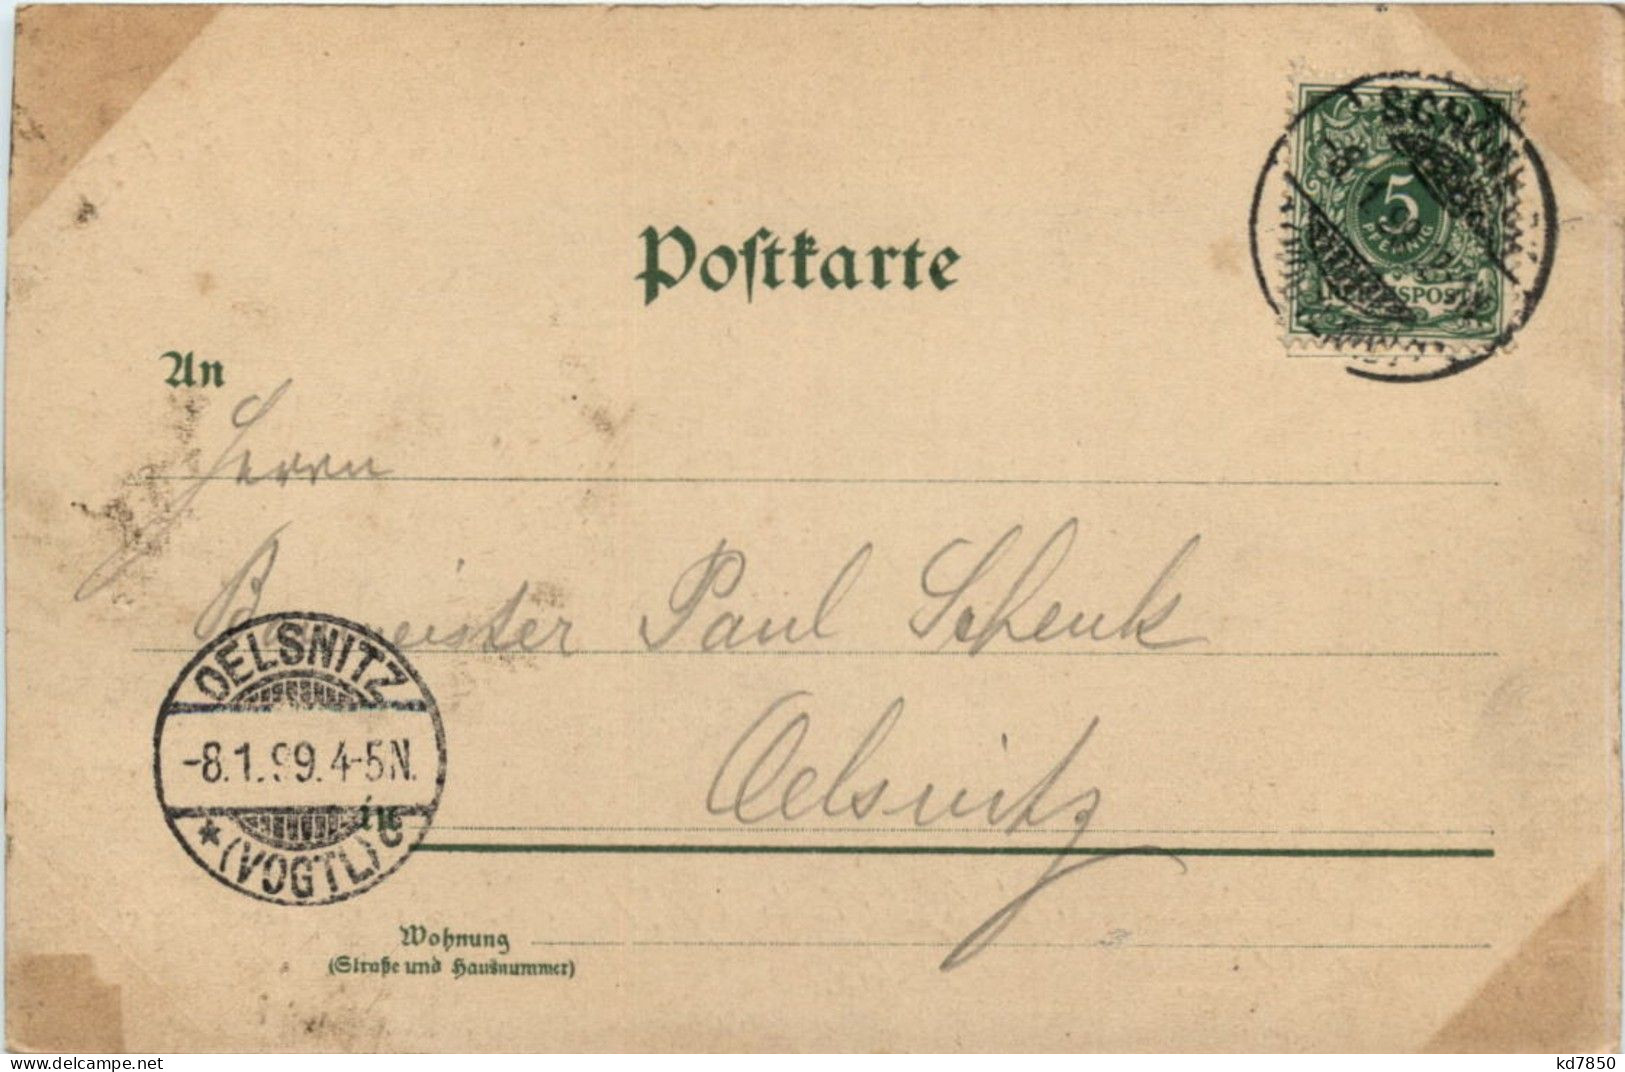 Postkarte
5
PFENNIG
REICHSPOST
An
Herrn
Baumeister Paul Schenk
OELSNITZ
-8.1.99.4-5N.
* (VOGTL) c
in
Oelsnitz
Wohnung
(Straße und Hausnummer)
www.delcampe.net
kd7850